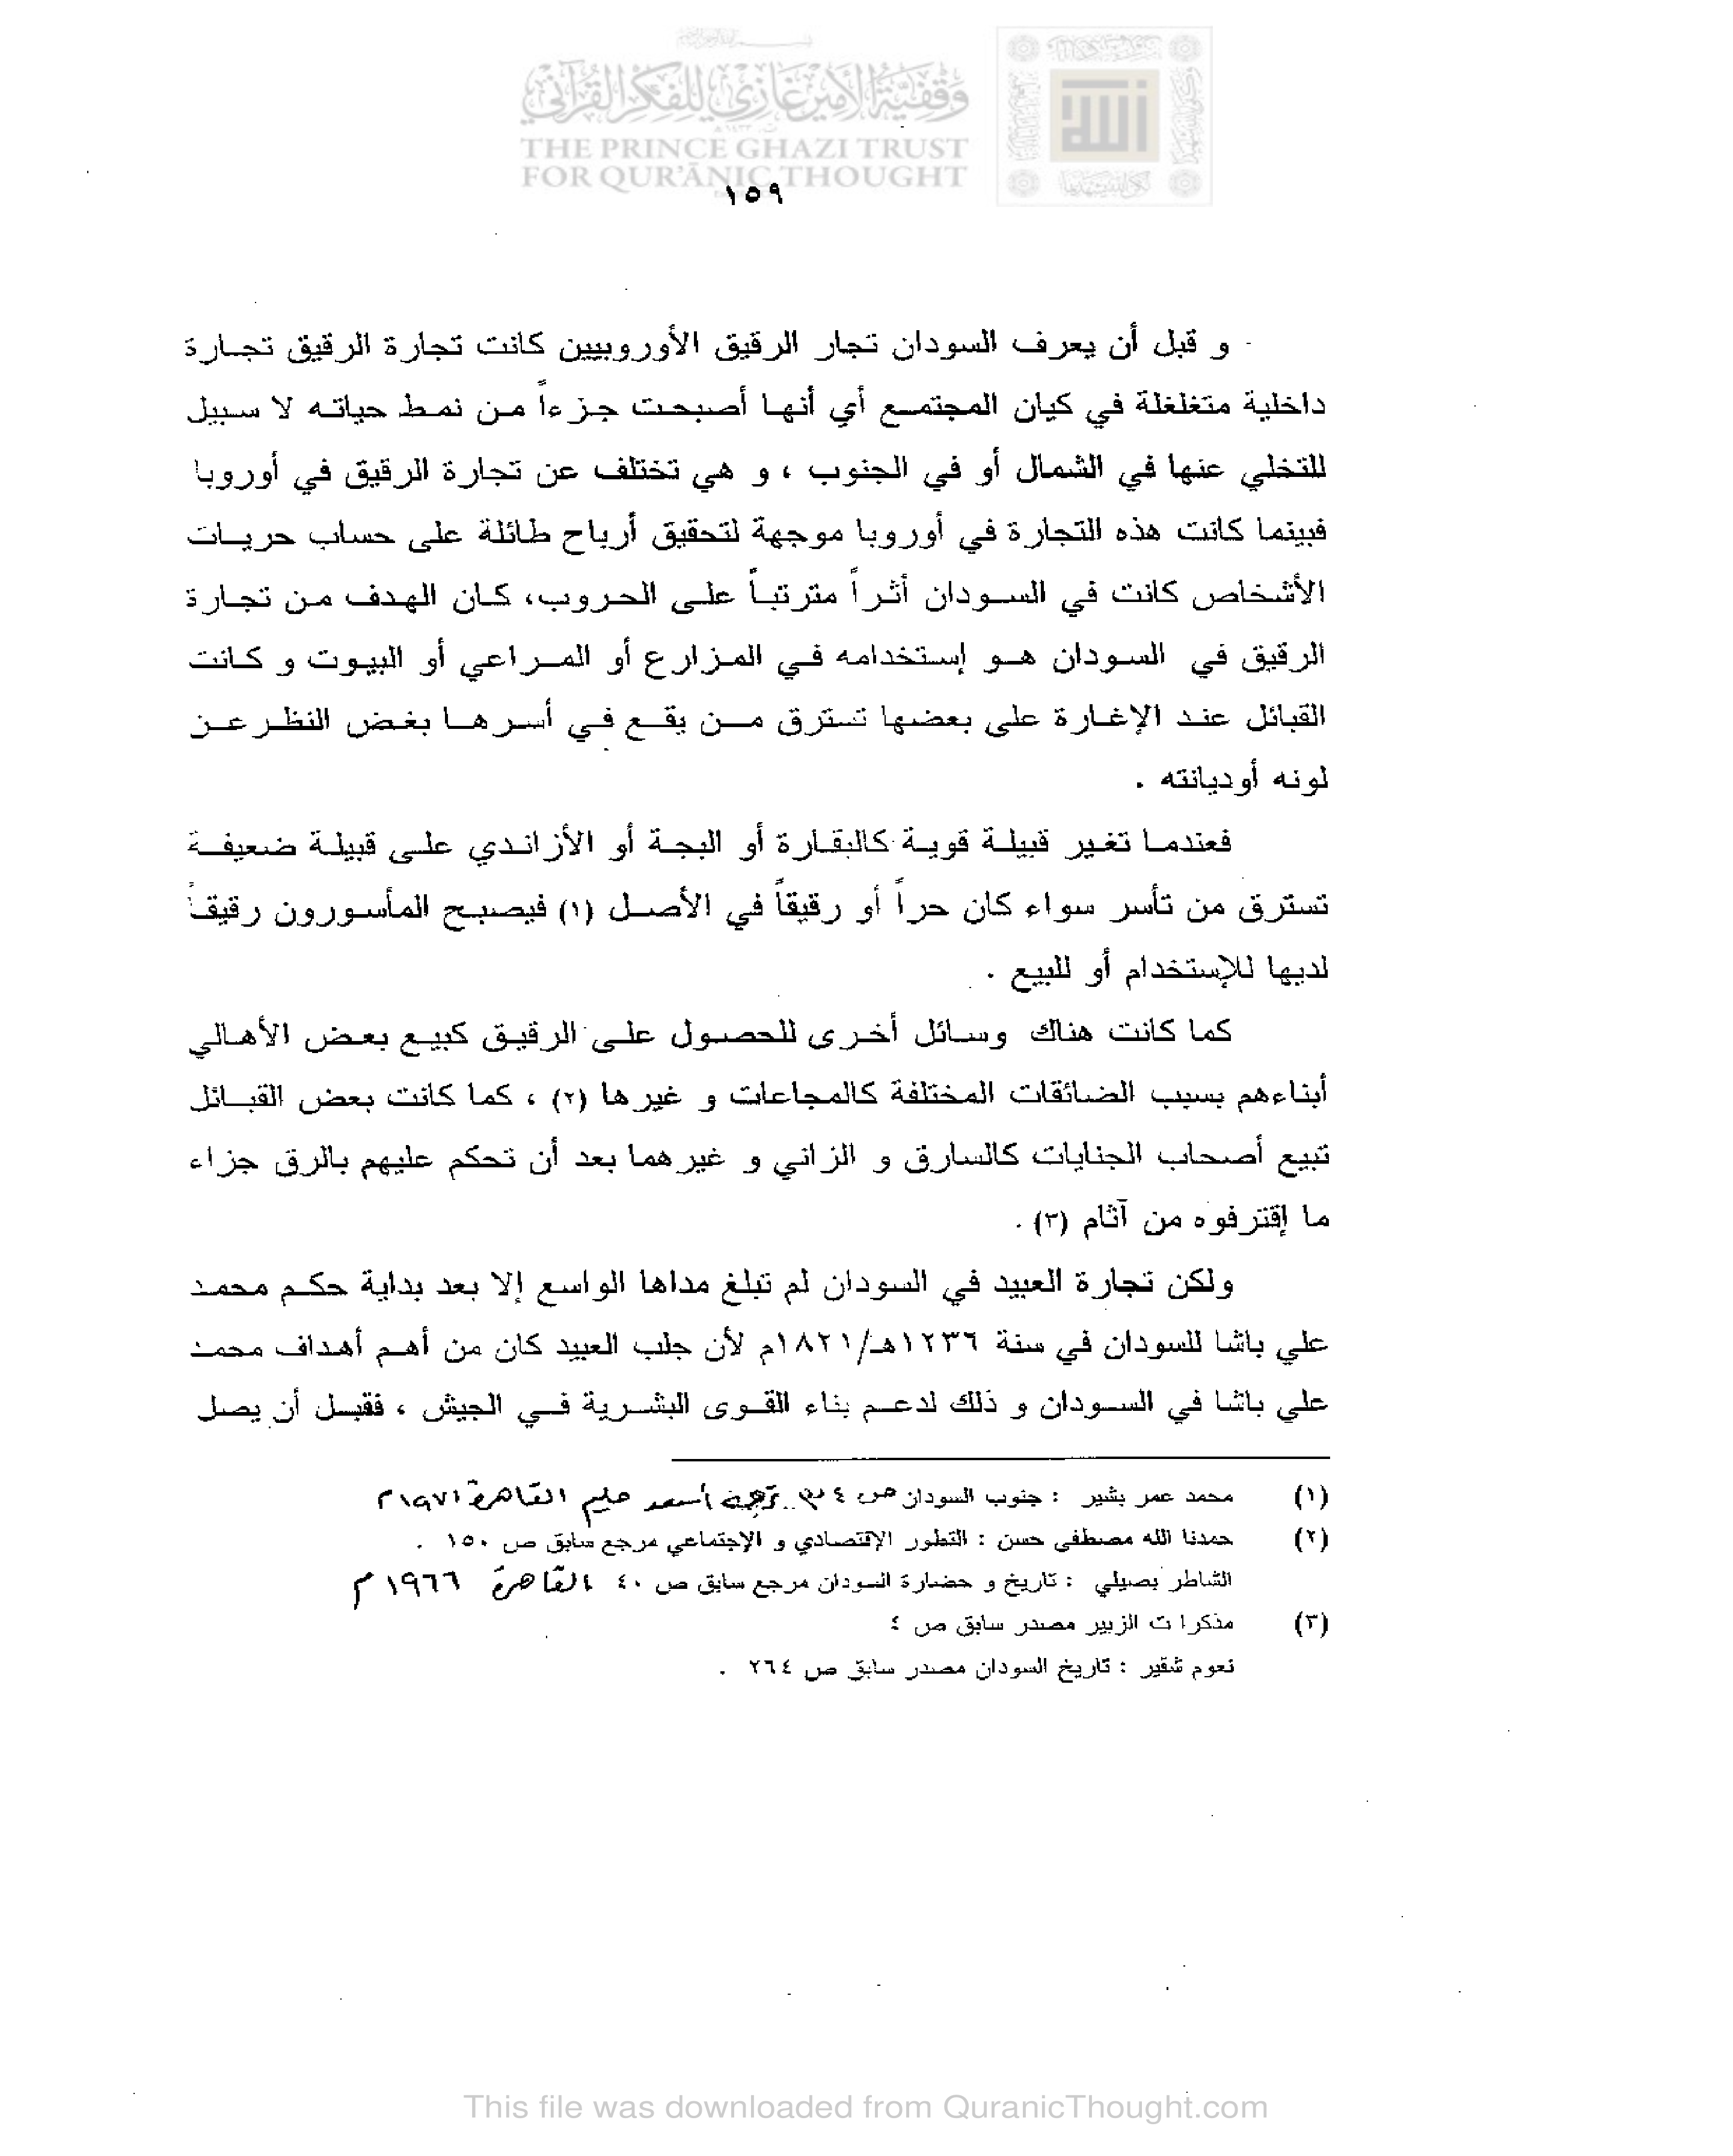 وقفية الأمير غازي للفكر القرآني
THE PRINCE GHAZI TRUST
FOR QUR'ĀNIC THOUGHT
١٥٩
و قبل أن يعرف السودان تجار الرقيق الأوروبيين كانت تجارة الرقيق تجارة
داخلية متغلغلة في كيان المجتمع أي أنها أصبحت جزءاً من نمط حياته لا سبيل
للتخلي عنها في الشمال أو في الجنوب ، و هي تختلف عن تجارة الرقيق في أوروبا
فبينما كانت هذه التجارة في أوروبا موجهة لتحقيق أرباح طائلة على حساب حريات
الأشخاص كانت في السودان أثراً مترتباً على الحروب، كان الهدف من تجارة
الرقيق في السودان هو إستخدامه في المزارع أو المراعي أو البيوت و كانت
القبائل عند الإغارة على بعضها تسترق من يقع في أسرها بغض النظر عن
لونه أوديانته .
فعندما تغير قبيلة قوية كالبقارة أو البجة أو الأزاندي على قبيلة ضعيفة
تسترق من تأسر سواء كان حراً أو رقيقاً في الأصل (١) فيصبح المأسورون رقيقاً
لديها للإستخدام أو للبيع .
كما كانت هناك وسائل أخرى للحصول على الرقيق كبيع بعض الأهالي
أبناءهم بسبب الضائقات المختلفة كالمجاعات و غيرها (٢) ، كما كانت بعض القبائل
تبيع أصحاب الجنايات كالسارق و الزاني و غيرهما بعد أن تحكم عليهم بالرق جزاء
ما إقترفوه من آثام (٣) .
ولكن تجارة العبيد في السودان لم تبلغ مداها الواسع إلا بعد بداية حكم محمد
علي باشا للسودان في سنة ١٢٣٦هـ/١٨٢١م لأن جلب العبيد كان من أهم أهداف محمد
علي باشا في السودان و ذلك لدعم بناء القوى البشرية في الجيش ، فقبل أن يصل
(١) محمد عمر بشير : جنوب السودان ص ترجمة أسعد حليم القاهرة ١٩٧١م
(٢) حمدنا الله مصطفى حسن : التطور الإقتصادي و الإجتماعي مرجع سابق ص ١٥٠ .
الشاطر بصيلي : تاريخ و حضارة السودان مرجع سابق ص ٤٠ القاهرة ١٩٦٦م
(٣) مذكرا ت الزبير مصدر سابق ص ٤
نعوم شقير : تاريخ السودان مصدر سابق ص ٢٦٤ .
This file was downloaded from QuranicThought.com